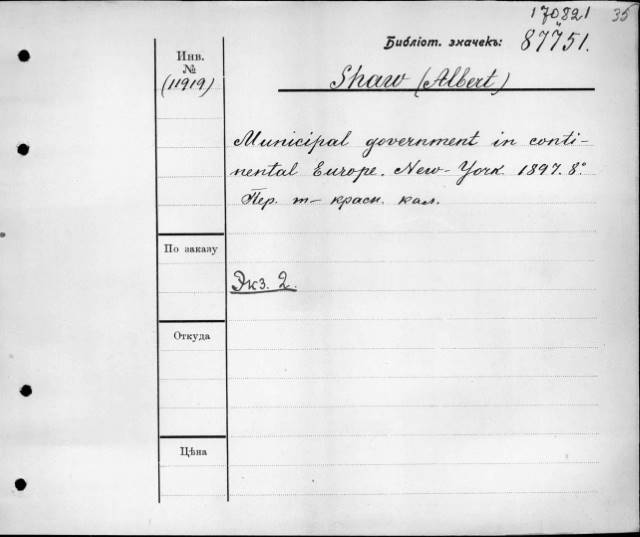 170821 35
Библіот. значекъ: 87751.
Инв.
№
(11919)
Shaw (Albert)
Municipal government in conti-
nental Europe. New-York. 1897. 8°
Пер. т- красн. кал.
По заказу
Экз. 2.
Откуда
Цѣна